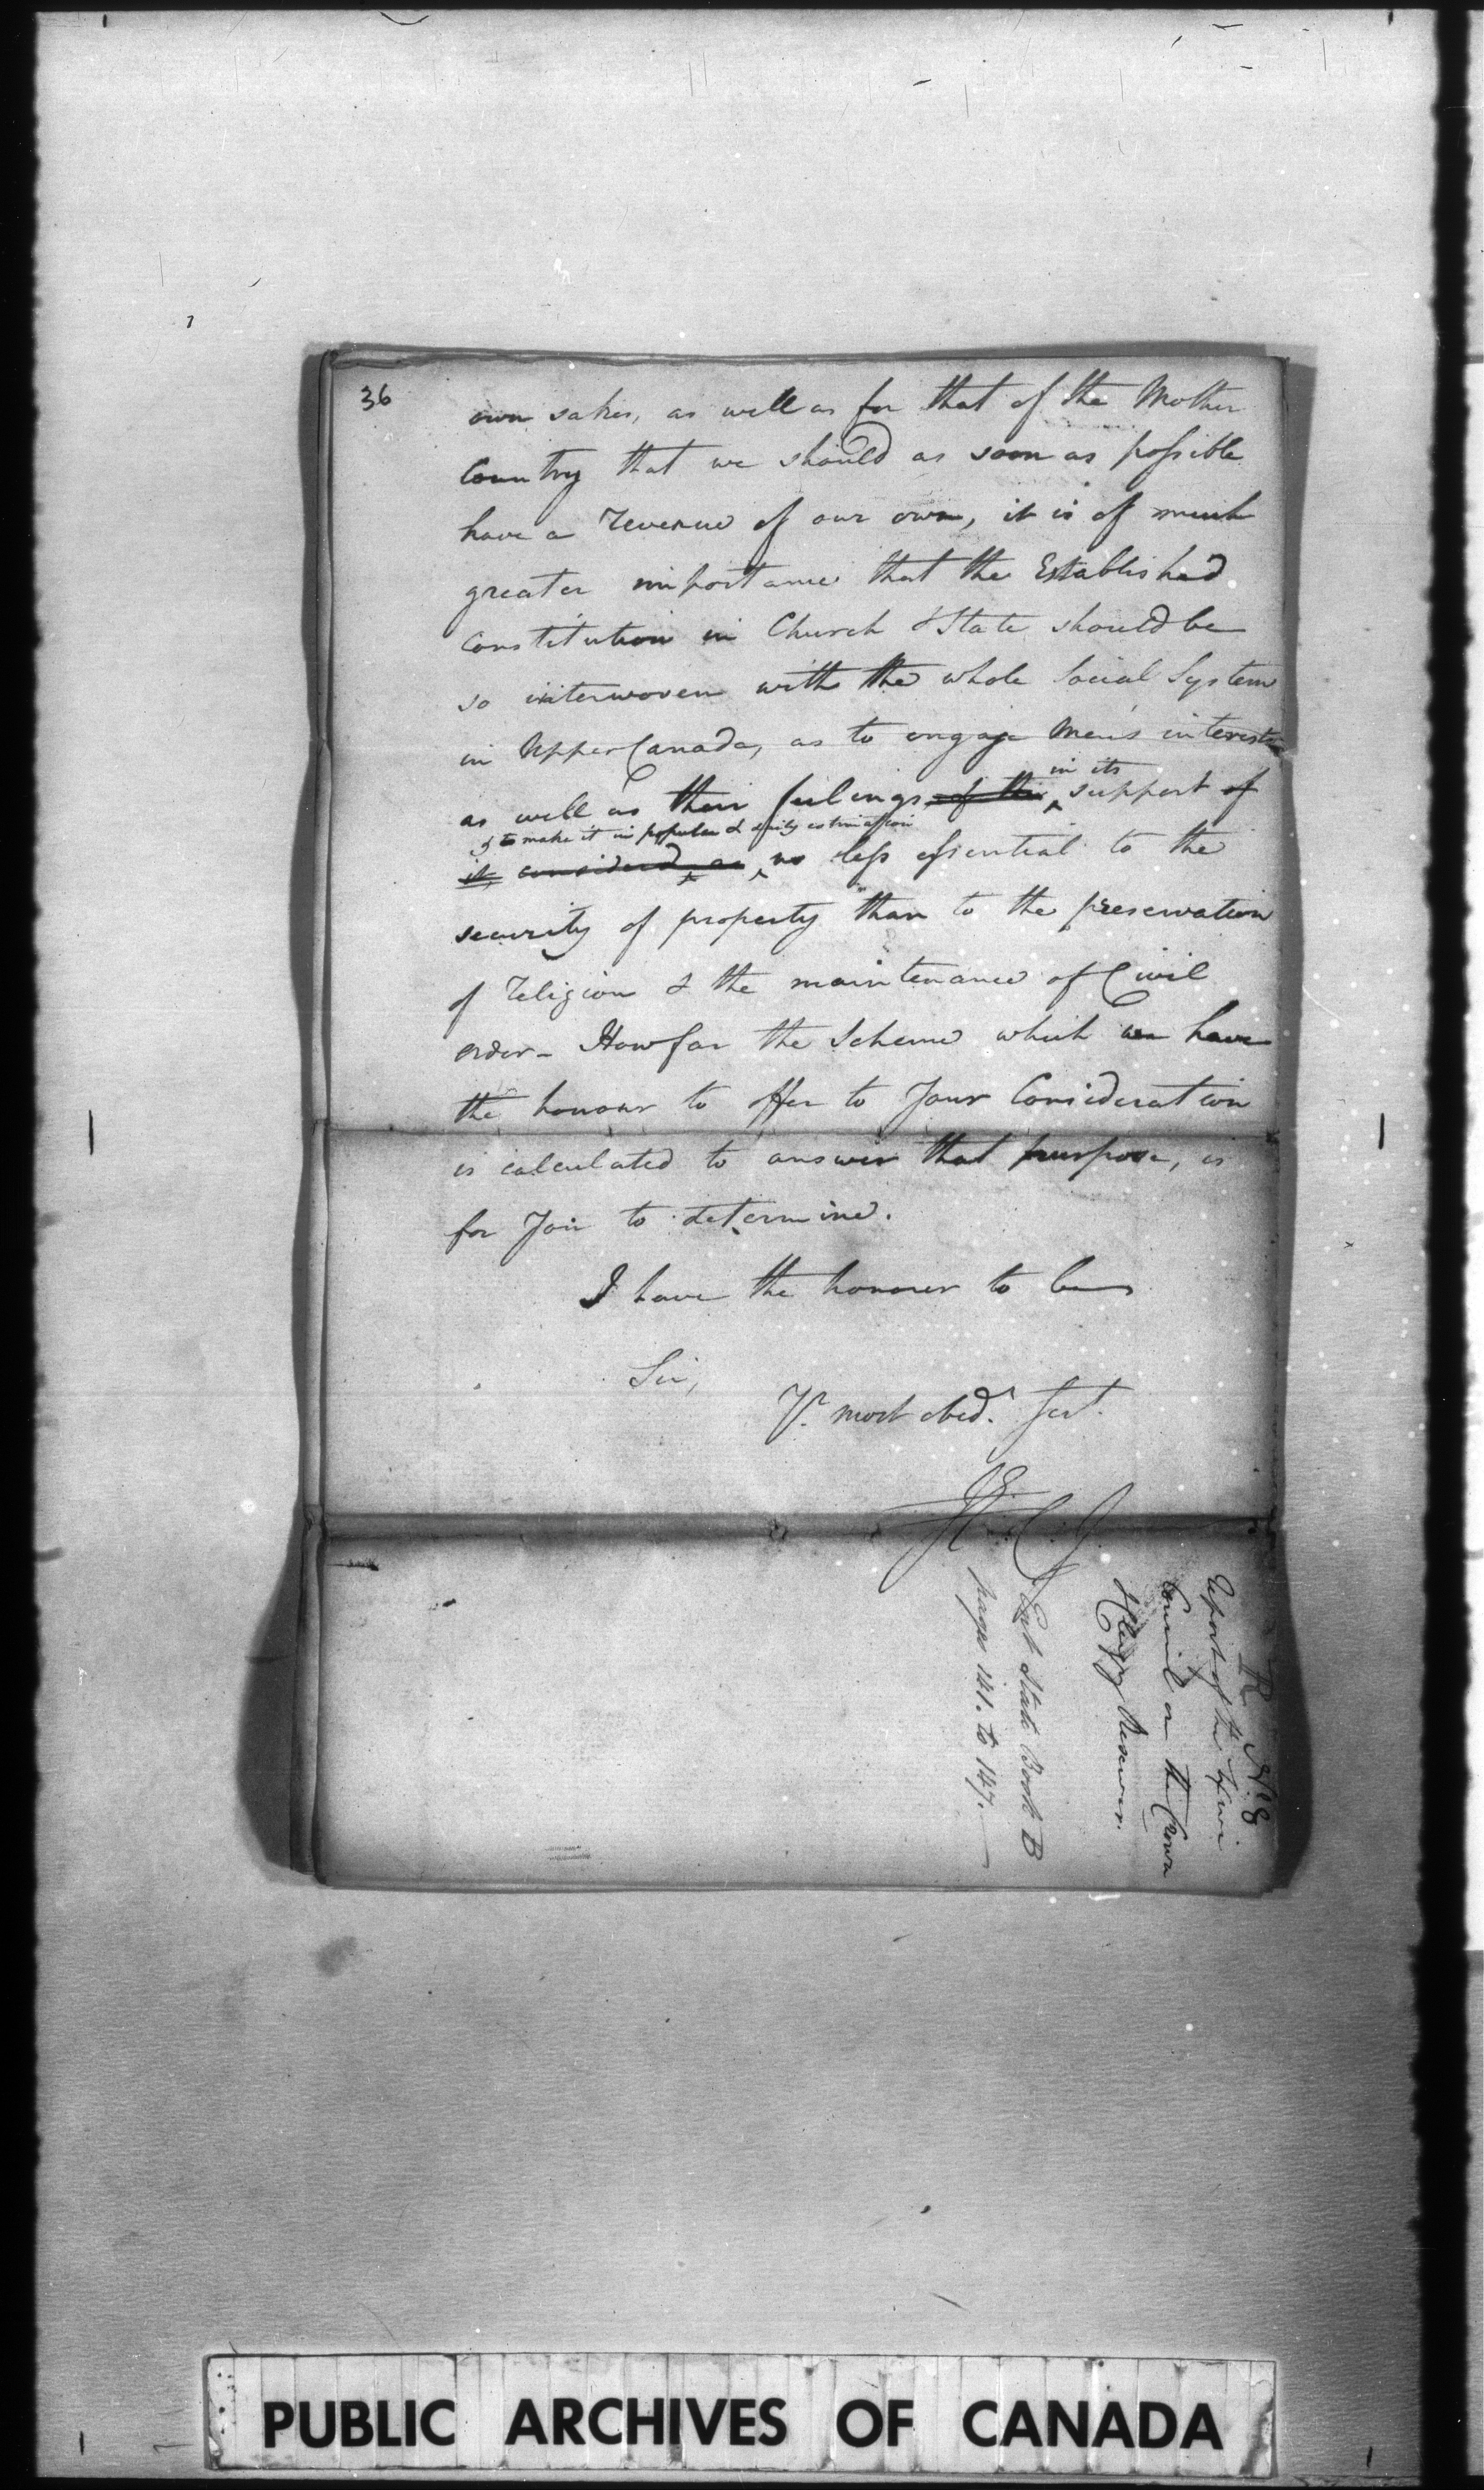 36
own sakes, as well as for that of the Mother
Country that we should as soon as possible
have a revenue of our own, it is of much
greater importance that the Established
Constitution in Church & State should be
so interwoven with the whole Social System
in Upper Canada, as to engage Men's interests
in its
as well as their feelings of the support of
& to make it in popular & estimation
it, considered as no less essential to the
security of property than to the preservation
of religion & the maintenance of Civil
order – How far the Scheme which we have
the honour to offer to Your Consideration
is calculated to answer that purpose, is
for You to determine.
I have the honour to be
Sir,
Yr. most obedt. Sert.
R No. 8
Report of the Exve
Council on the Crown
& Clergy Reserves.
Ent State Book B
page 141. to 147.
PUBLIC ARCHIVES OF CANADA